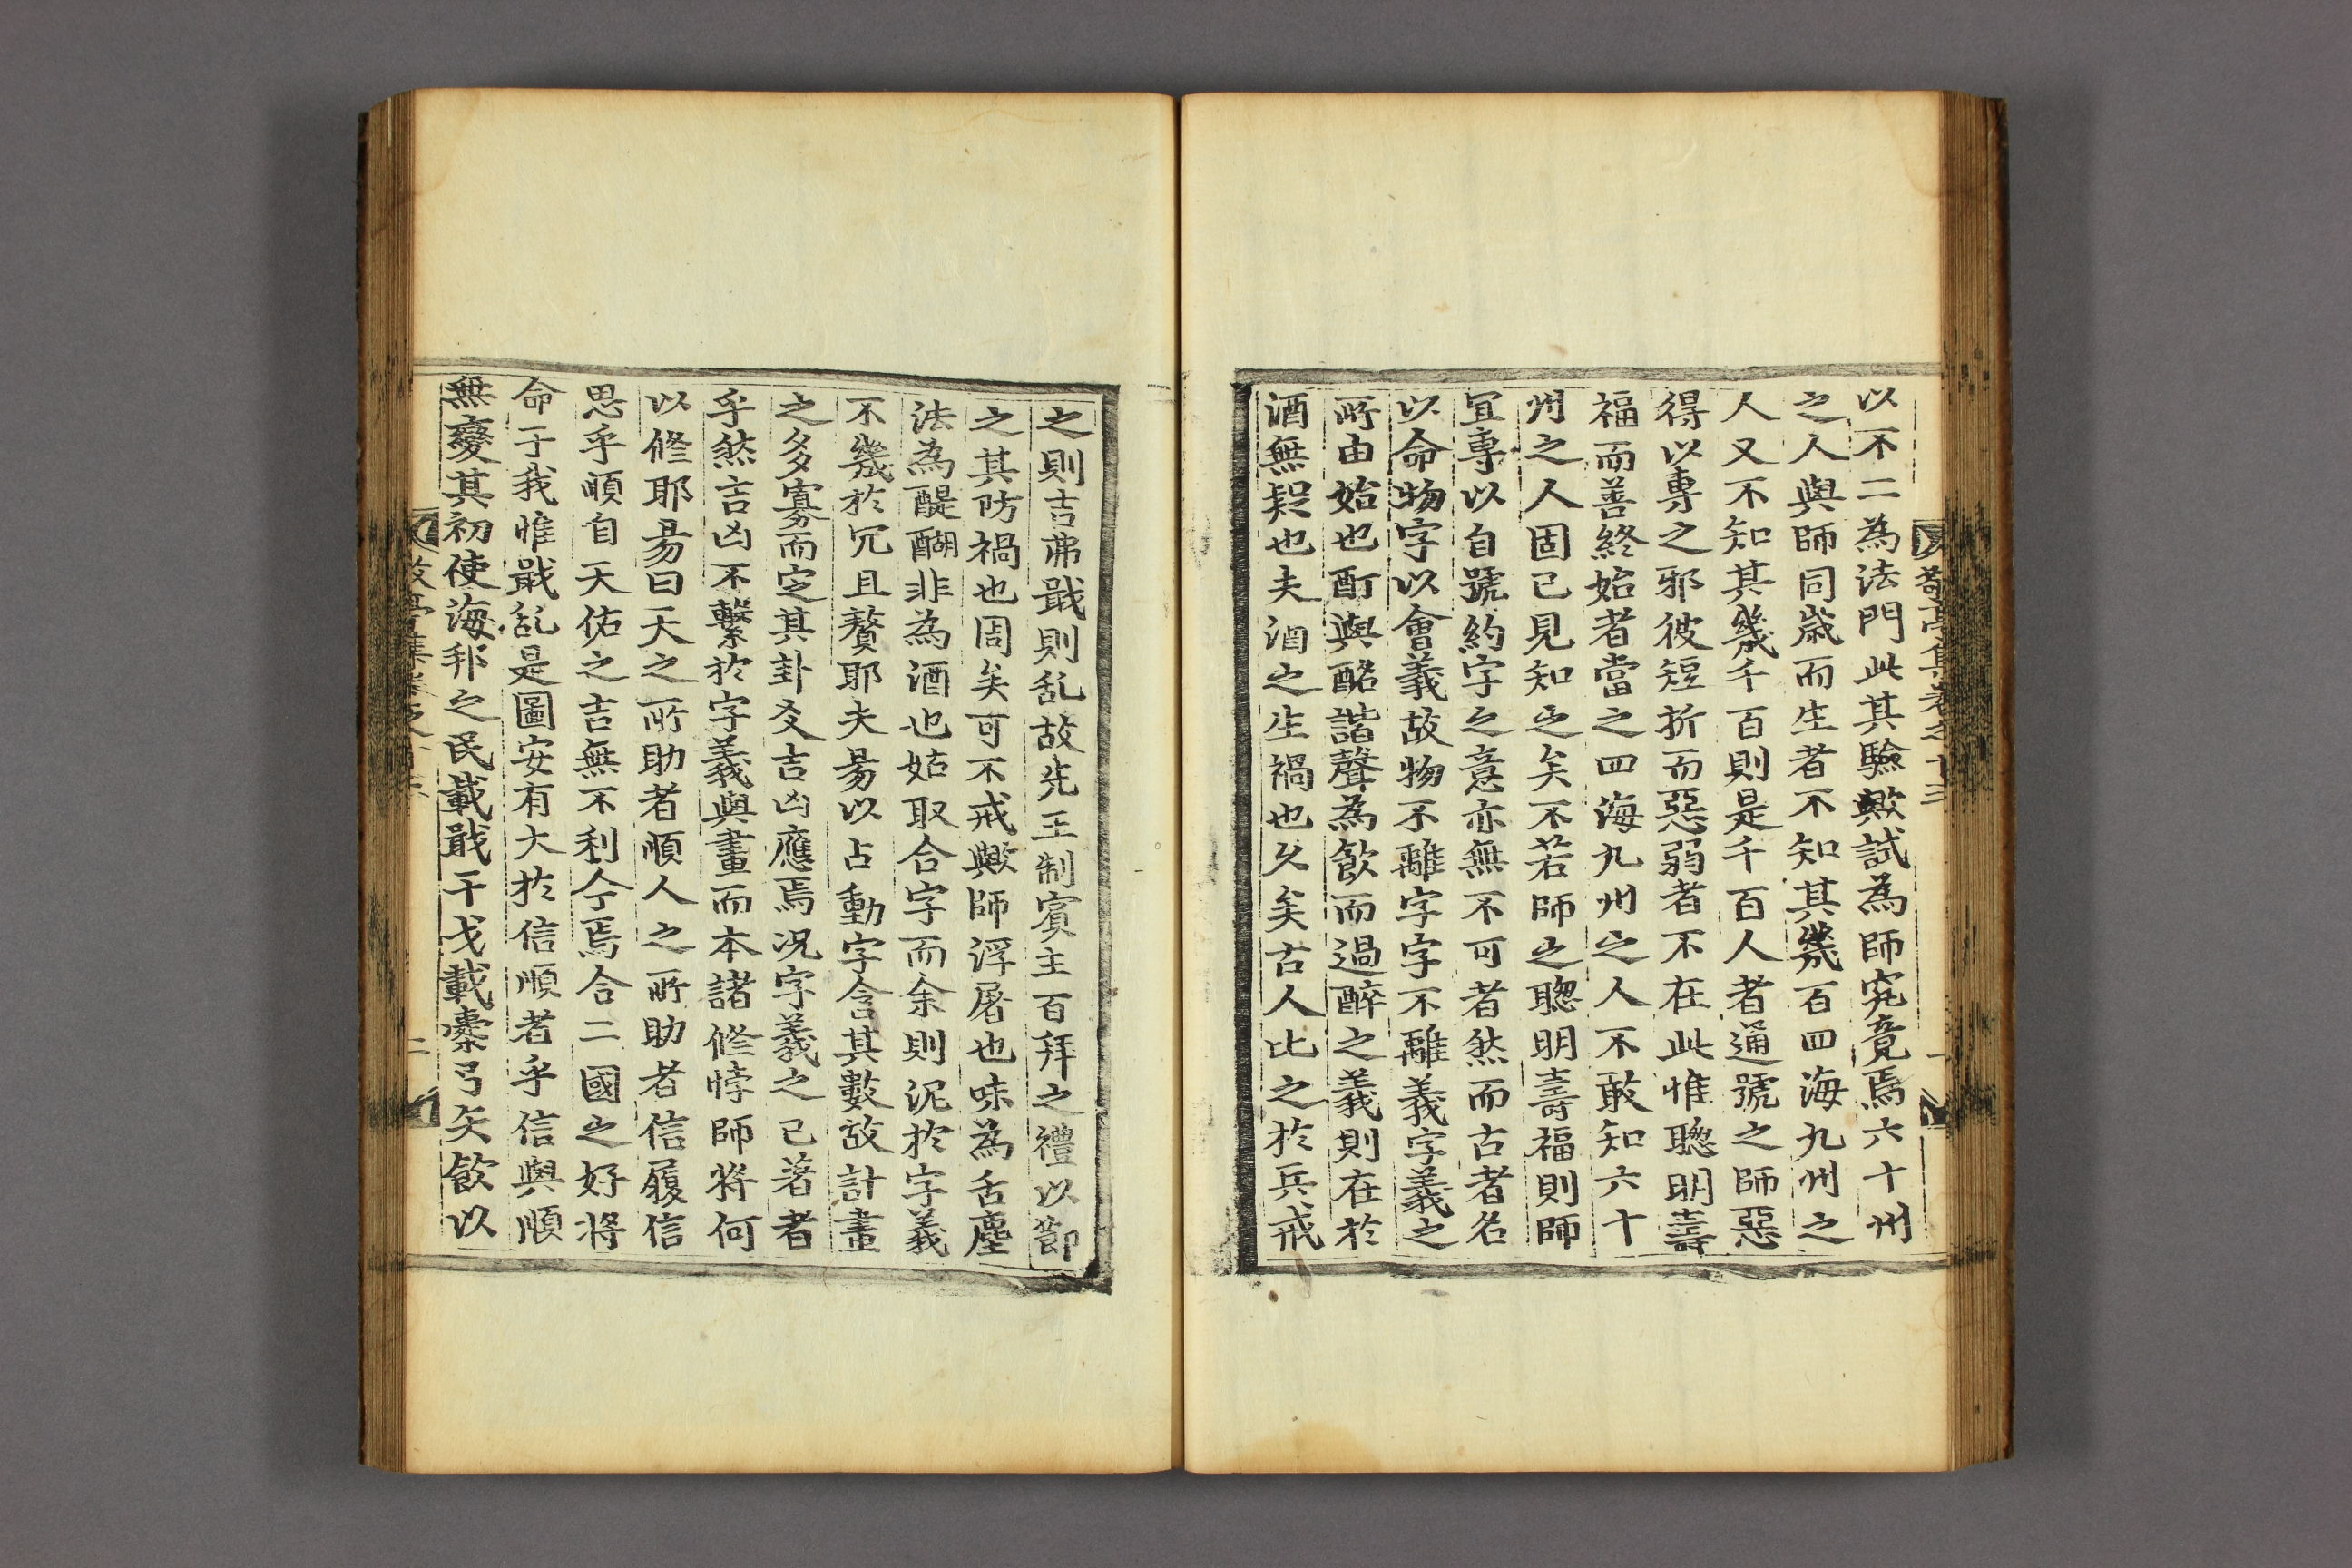 敬亭集卷之十三
以不二為法門此其驗歟試為師究竟焉六十州
之人與師同歲而生者不知其幾百四海九州之
人又不知其幾千百則是千百人者通號之師惡
得以專之邪彼短折而惡弱者不在此惟聰明壽
福而善終始者當之四海九州之人不敢知六十
州之人固已見知之矣不若師之聰明壽福則師
宜專以自號約字之意亦無不可者然而古者名
以命物字以會義故物不離字字不離義字義之
所由始也酊與酩諧聲為飲而過醉之義則在於
酒無疑也夫酒之生禍也久矣古人比之於兵戒
之則吉弗戢則乱故先王制賓主百拜之禮以節
之其防禍也固矣可不戒歟師浮屠也味為舌塵
法為醍醐非為酒也姑取合字而余則泥於字義
不幾於冗且贅耶夫昜以占動字含其數故計畫
之多寡而定其卦爻吉凶應焉况字義之已著者
乎然吉凶不繫於字義與畫而本諸修悖師將何
以修耶昜曰天之所助者順人之所助者信履信
思乎順自天佑之吉無不利今焉合二國之好將
命于我惟戢乱是圖安有大於信順者乎信與順
無變其初使海邦之民載戢干戈載櫜弓矢飲以
二